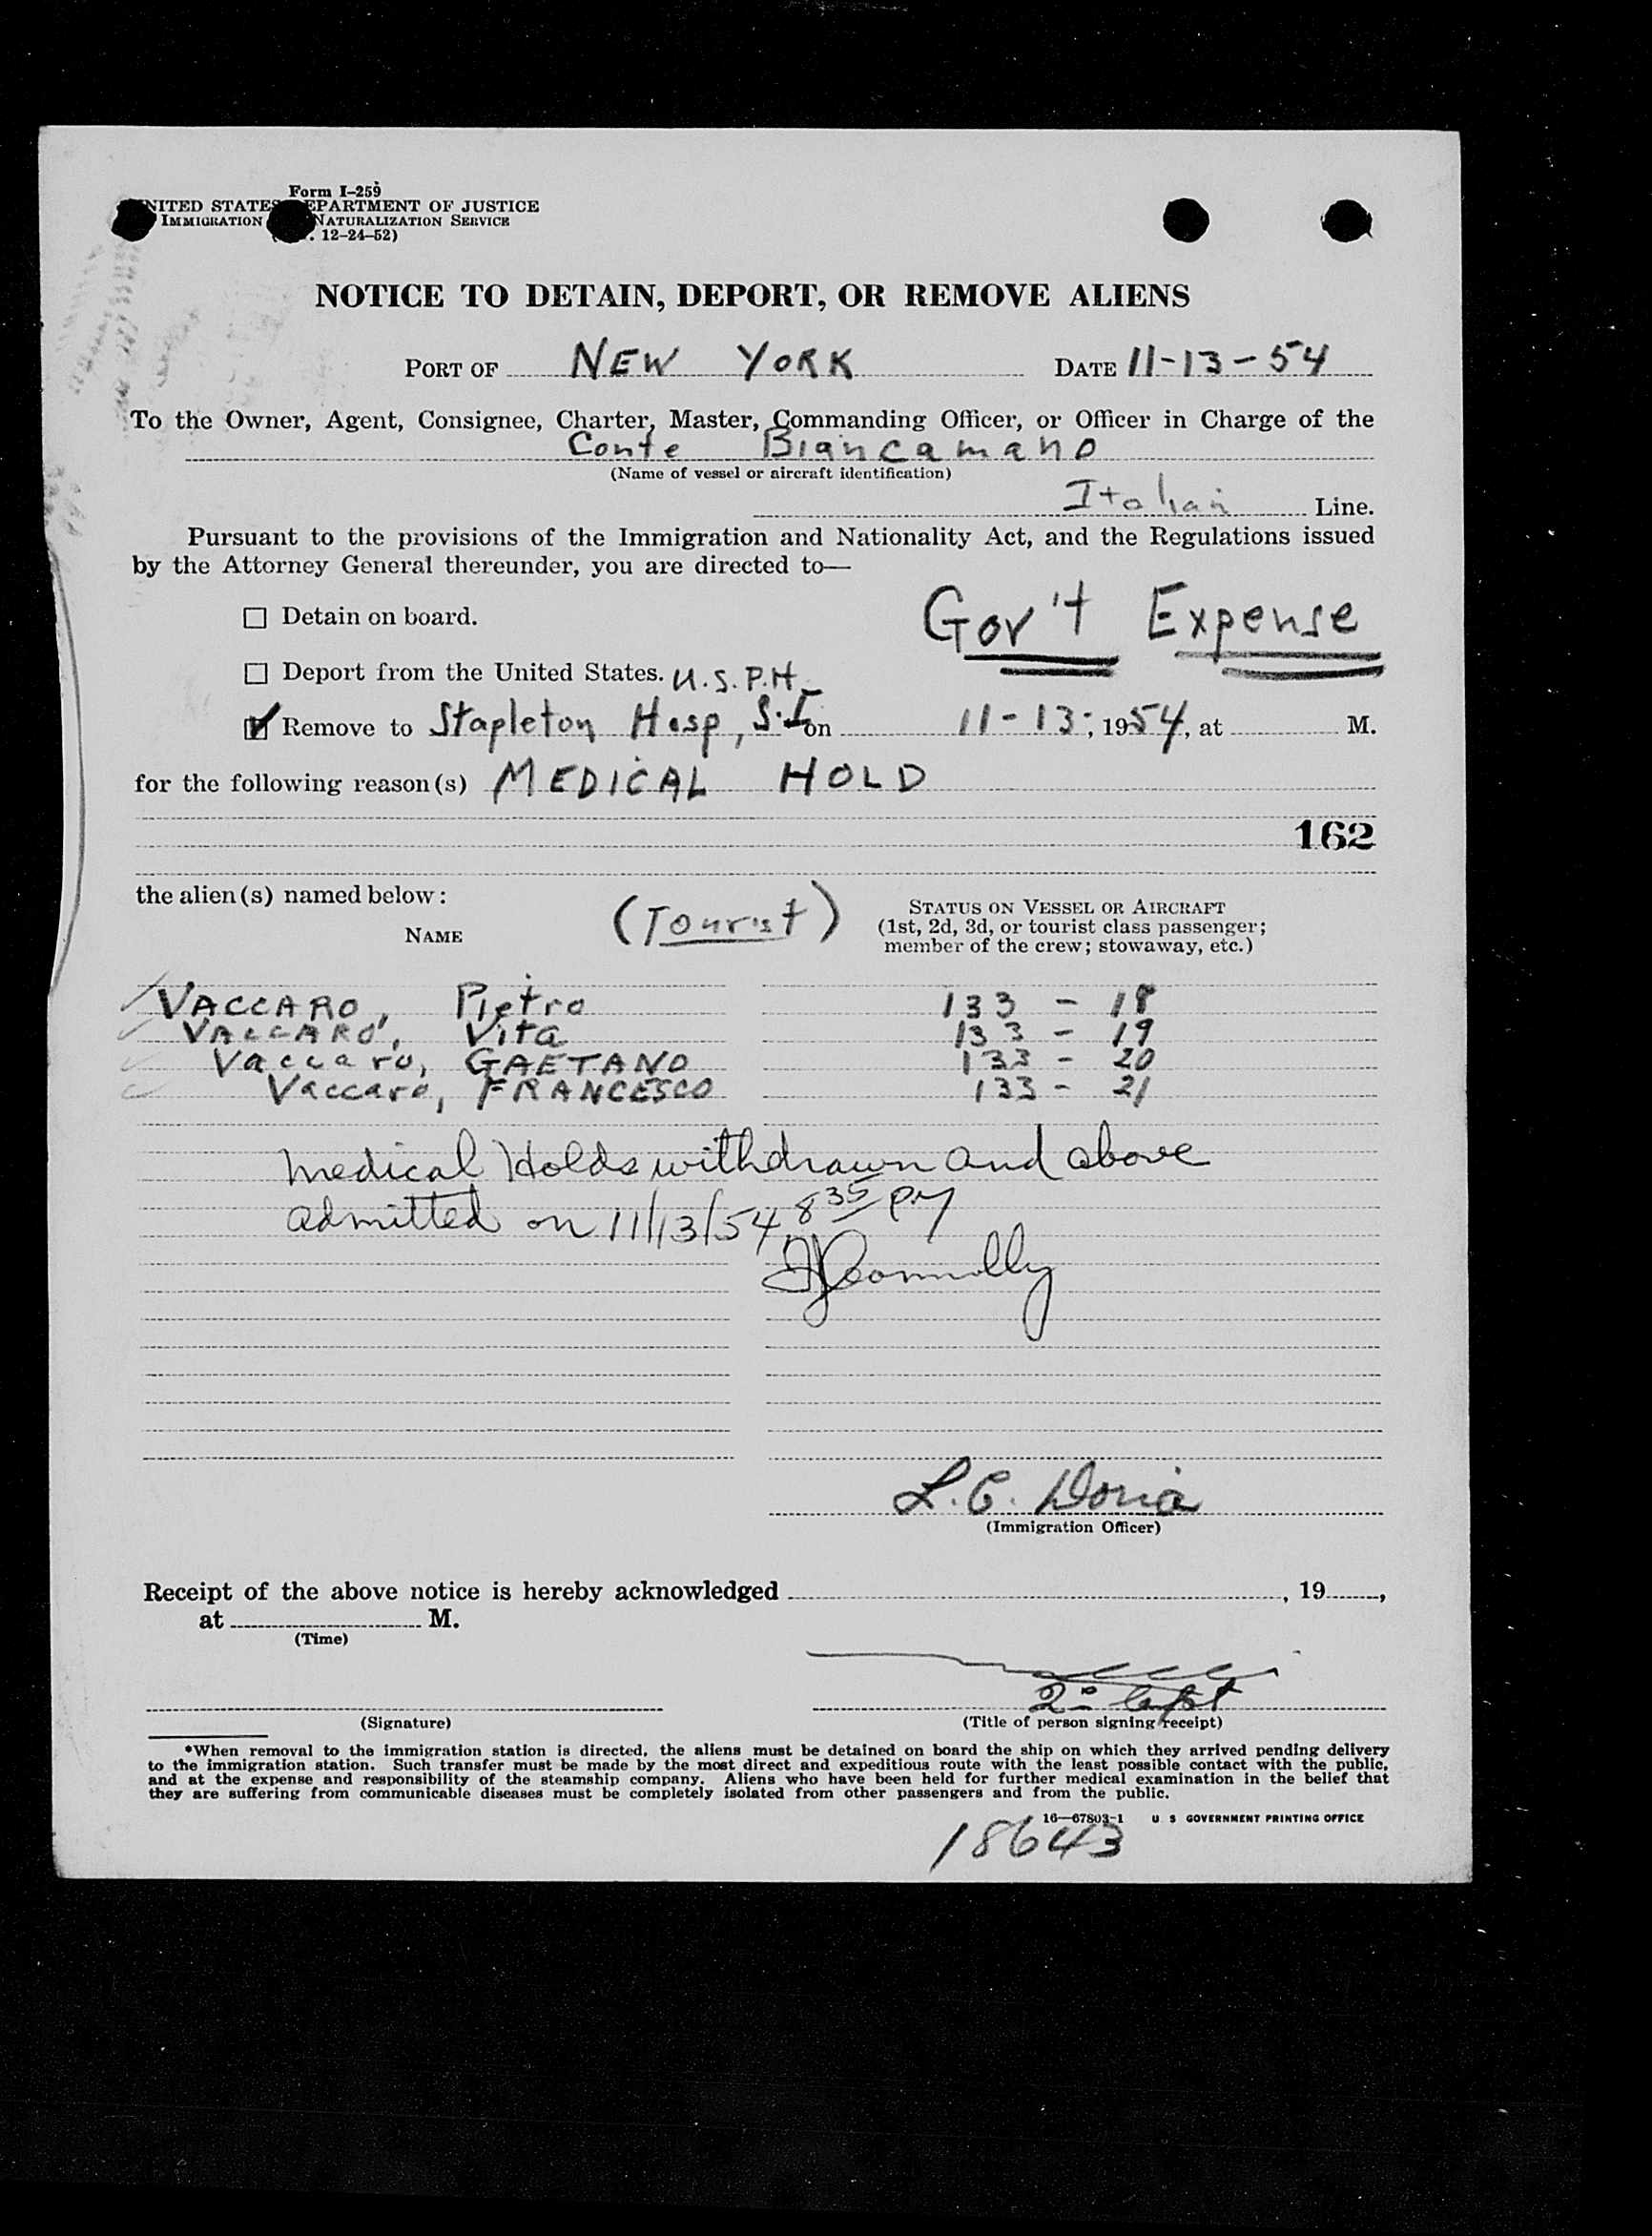 Form I-259
UNITED STATES DEPARTMENT OF JUSTICE
IMMIGRATION NATURALIZATION SERVICE
12-24-52)
NOTICE TO DETAIN, DEPORT, OR REMOVE ALIENS
PORT OF NEW YORK DATE 11-13-54
To the Owner, Agent, Consignee, Charter, Master, Commanding Officer, or Officer in Charge of the
Conte Biancamano
(Name of vessel or aircraft identification)
Italian Line.
Pursuant to the provisions of the Immigration and Nationality Act, and the Regulations issued
by the Attorney General thereunder, you are directed to—
☐ Detain on board.
Gov't Expense
☐ Deport from the United States. U.S.P.H.
☑ Remove to Stapleton Hosp, S.I. on 11-13-, 1954, at M.
for the following reason(s) MEDICAL HOLD
162
the alien(s) named below:
(Tourist)
NAME
STATUS ON VESSEL OR AIRCRAFT
(1st, 2d, 3d, or tourist class passenger;
member of the crew; stowaway, etc.)
VACCARO, Pietro 133 - 18
VACCARO, Vita 133 - 19
Vaccaro, GAETANO 133 - 20
Vaccaro, FRANCESCO 133 - 21
Medical Holds withdrawn and above
admitted on 11/13/54 8 35 PM
Connolly
L. C. Doria
(Immigration Officer)
Receipt of the above notice is hereby acknowledged , 19 ,
at M.
(Time)
(Signature)
(Title of person signing receipt)
*When removal to the immigration station is directed, the aliens must be detained on board the ship on which they arrived pending delivery
to the immigration station. Such transfer must be made by the most direct and expeditious route with the least possible contact with the public,
and at the expense and responsibility of the steamship company. Aliens who have been held for further medical examination in the belief that
they are suffering from communicable diseases must be completely isolated from other passengers and from the public.
16—67803-1 U S GOVERNMENT PRINTING OFFICE
18643